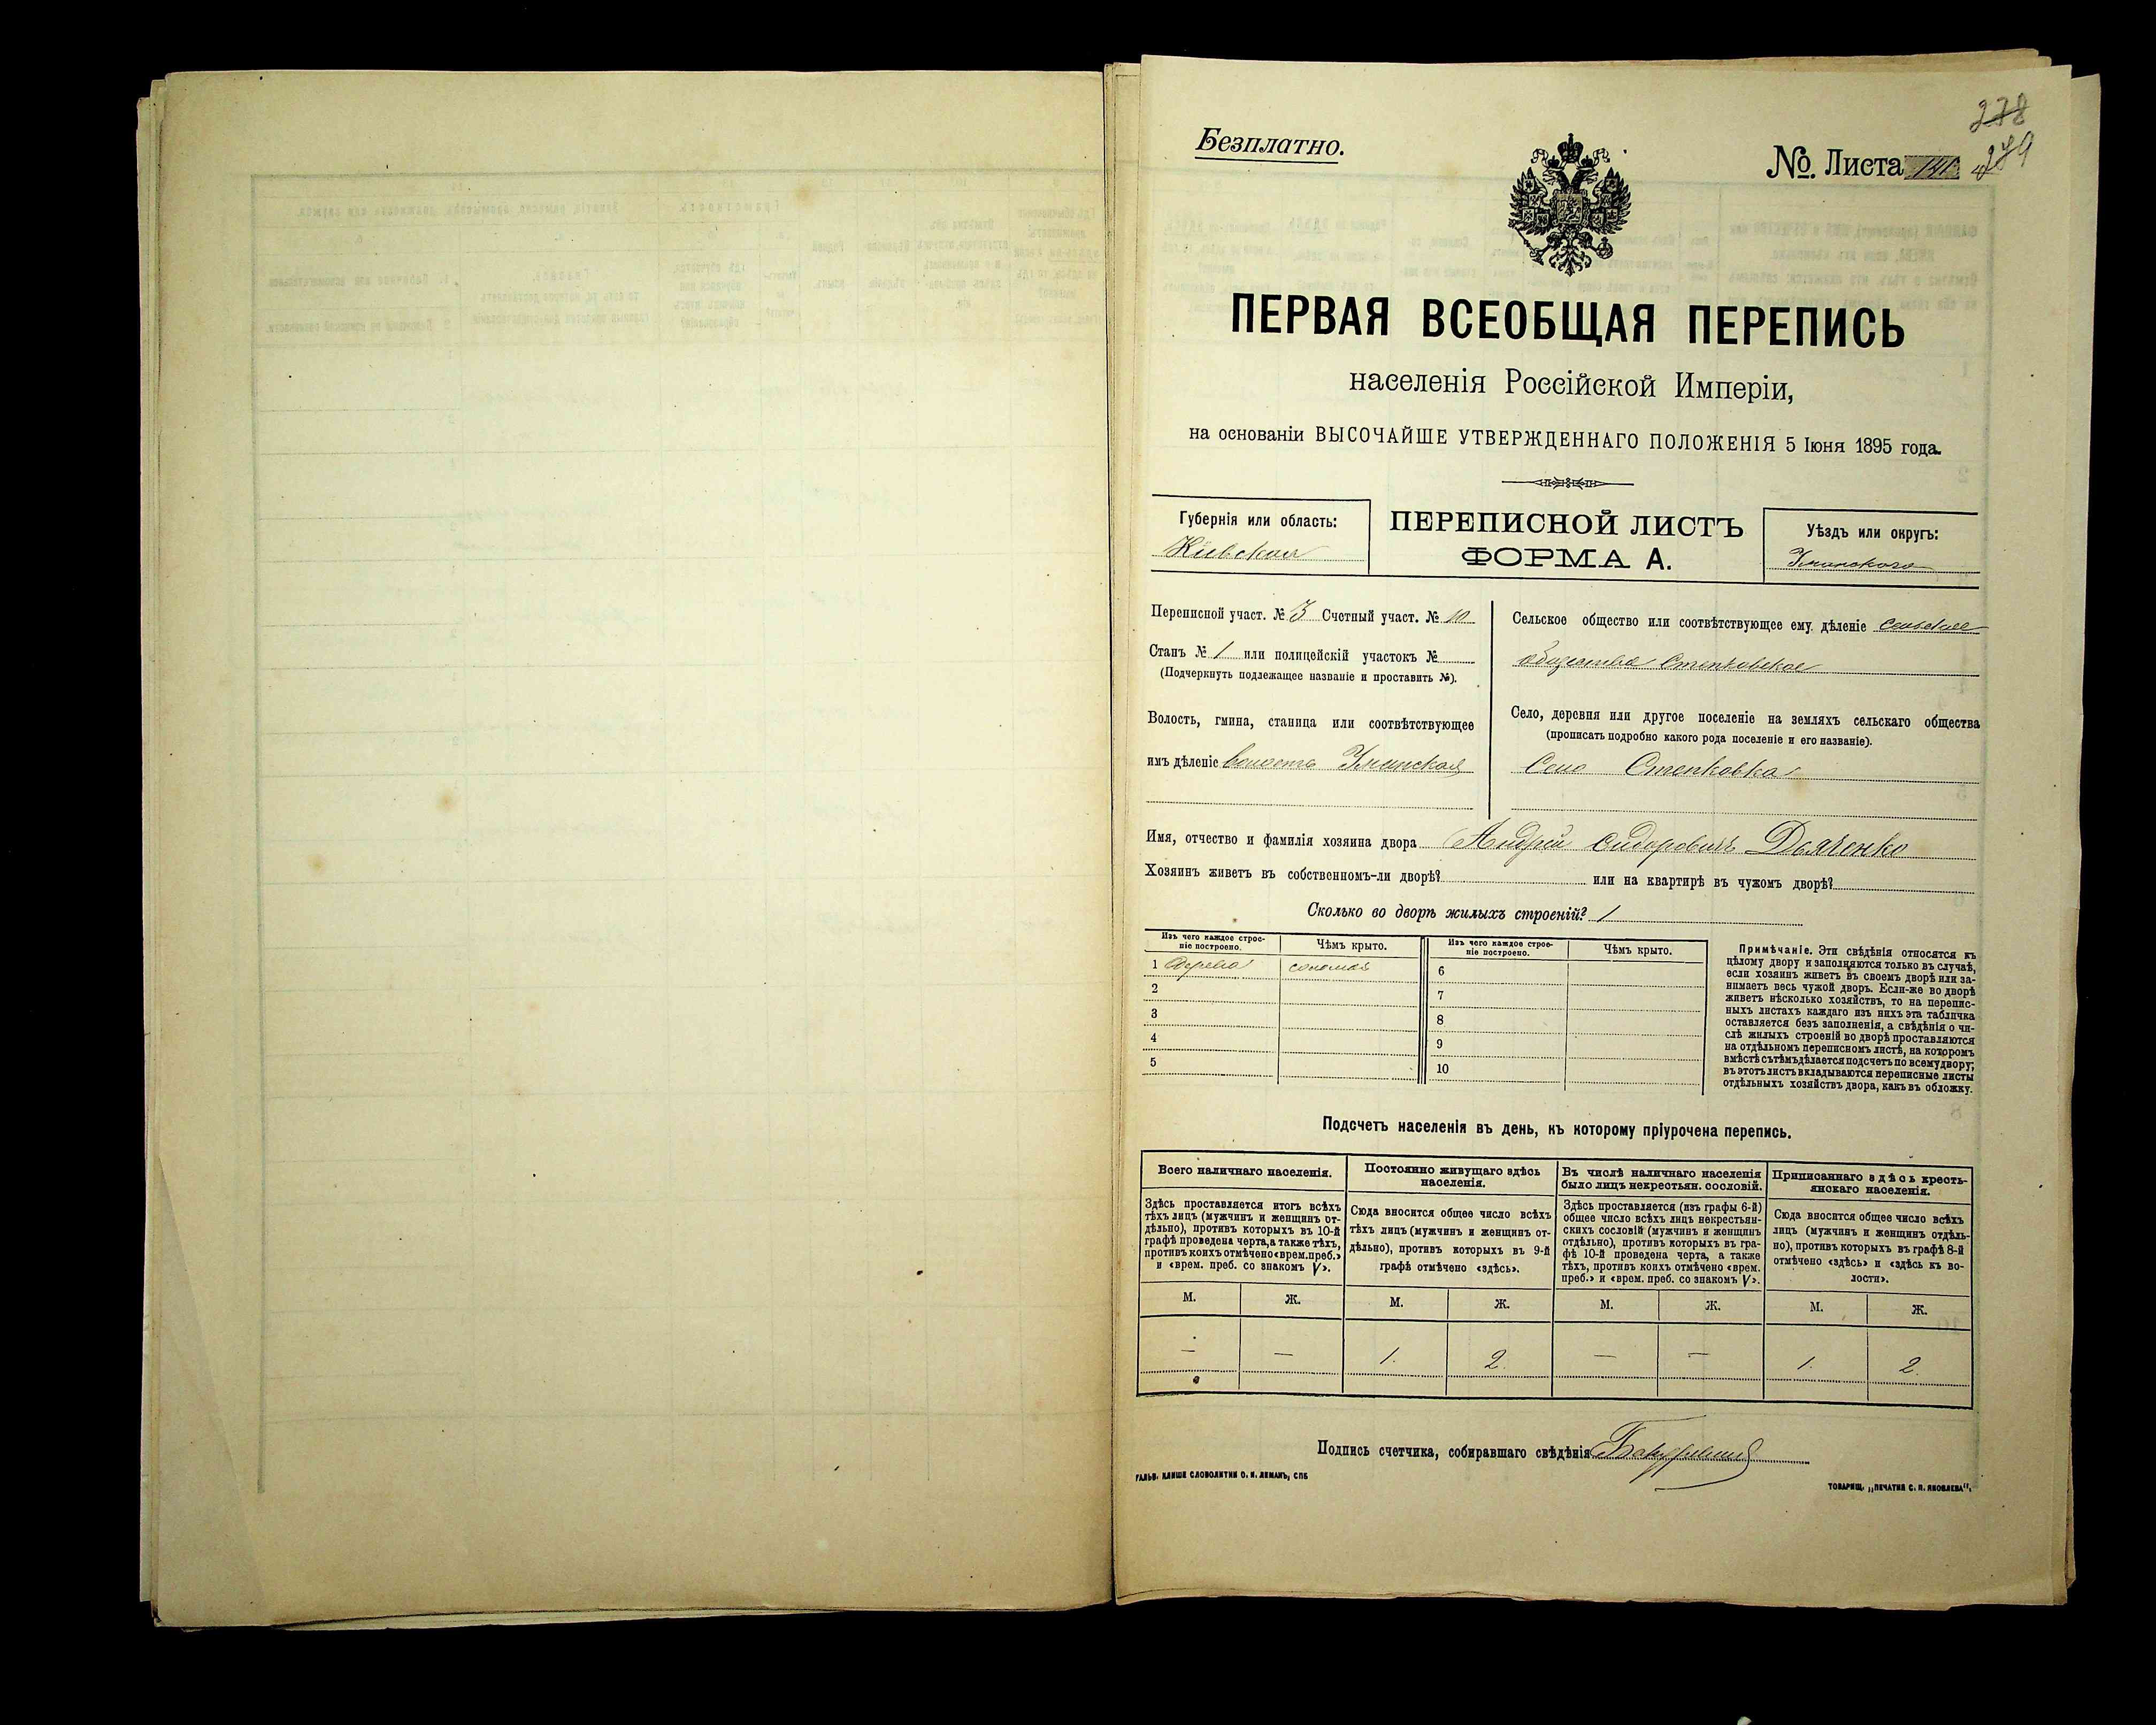 278
Безплатно.
№. Листа 141 279
ПЕРВАЯ ВСЕОБЩАЯ ПЕРЕПИСЬ
населенія Россійской Имперіи,
на основаніи ВЫСОЧАЙШЕ УТВЕРЖДЕННАГО ПОЛОЖЕНІЯ 5 Іюня 1895 года.
Губернія или область:
Кіевская
ПЕРЕПИСНОЙ ЛИСТЪ
ФОРМА А.
Уѣздъ или округъ:
Уманского
Переписной участ. № 3 Счетный участ. № 10
Станъ № 1 или полицейскій участокъ №
(Подчеркнуть подлежащее названіе и проставить №).
Волость, гмина, станица или соотвѣтствующее
имъ дѣленіе волость Уманская
Сельское общество или соотвѣтствующее ему дѣленіе сельское
общество Степковское
Село, деревня или другое поселеніе на земляхъ сельскаго общества
(прописать подробно какого рода поселеніе и его названіе).
Село Степковка
Имя, отчество и фамилія хозяина двора Андрей Сидоровичъ Дьяченко
Хозяинъ живетъ въ собственномъ-ли дворѣ? или на квартирѣ въ чужомъ дворѣ?
Сколько во дворѣ жилыхъ строеній? 1
Изъ чего каждое строе-
ніе построено.
Чѣмъ крыто.
Изъ чего каждое строе-
ніе построено.
Чѣмъ крыто.
1 дерева соломой
2
3
4
5
6
7
8
9
10
Примѣчаніе. Эти свѣдѣнія относятся къ
цѣлому двору и заполняются только въ случаѣ,
если хозяинъ живетъ въ своемъ дворѣ или за-
нимаетъ весь чужой дворъ. Если-же во дворѣ
живетъ нѣсколько хозяйствъ, то на перепис-
ныхъ листахъ каждаго изъ нихъ эта табличка
оставляется безъ заполненія, а свѣдѣнія о чи-
слѣ жилыхъ строеній во дворѣ проставляются
на отдѣльномъ переписномъ листѣ, на которомъ
вмѣстѣ съ тѣмъ дѣлается подсчетъ по всему двору;
въ этотъ листъ вкладываются переписные листы
отдѣльныхъ хозяйствъ двора, какъ въ обложку.
Подсчетъ населенія въ день, къ которому пріурочена перепись.
Всего наличнаго населенія.
Здѣсь проставляется итогъ всѣхъ
тѣхъ лицъ (мужчинъ и женщинъ от-
дѣльно), противъ которыхъ въ 10-й
графѣ проведена черта, а также тѣхъ,
противъ коихъ отмѣчено «врем. преб.»
и «врем. преб. со знакомъ V».
Постоянно живущаго здѣсь
населенія.
Сюда вносится общее число всѣхъ
тѣхъ лицъ (мужчинъ и женщинъ от-
дѣльно), противъ которыхъ въ 9-й
графѣ отмѣчено «здѣсь».
Въ числѣ наличнаго населенія
было лицъ некрестьян. сословій.
Здѣсь проставляется (изъ графы 6-й)
общее число всѣхъ лицъ некрестьян-
скихъ сословій (мужчинъ и женщинъ
отдѣльно), противъ которыхъ въ гра-
фѣ 10-й проведена черта, а также
тѣхъ, противъ коихъ отмѣчено «врем.
преб.» и «врем. преб. со знакомъ V».
Приписаннаго здѣсь кресть-
янскаго населенія.
Сюда вносится общее число всѣхъ
лицъ (мужчинъ и женщинъ отдѣль-
но), противъ которыхъ въ графѣ 8-й
отмѣчено «здѣсь» и «здѣсь къ во-
лости».
М. Ж. М. Ж. М. Ж. М. Ж.
— — 1. 2. — — 1. 2.
Подпись счетчика, собиравшаго свѣдѣнія
ГАЛЬВ. КЛИШЕ СЛОВОЛИТНИ О. И. ЛЕМАНЪ, СПБ
ТОВАРИЩ. „ПЕЧАТНЯ С. П. ЯКОВЛЕВА".